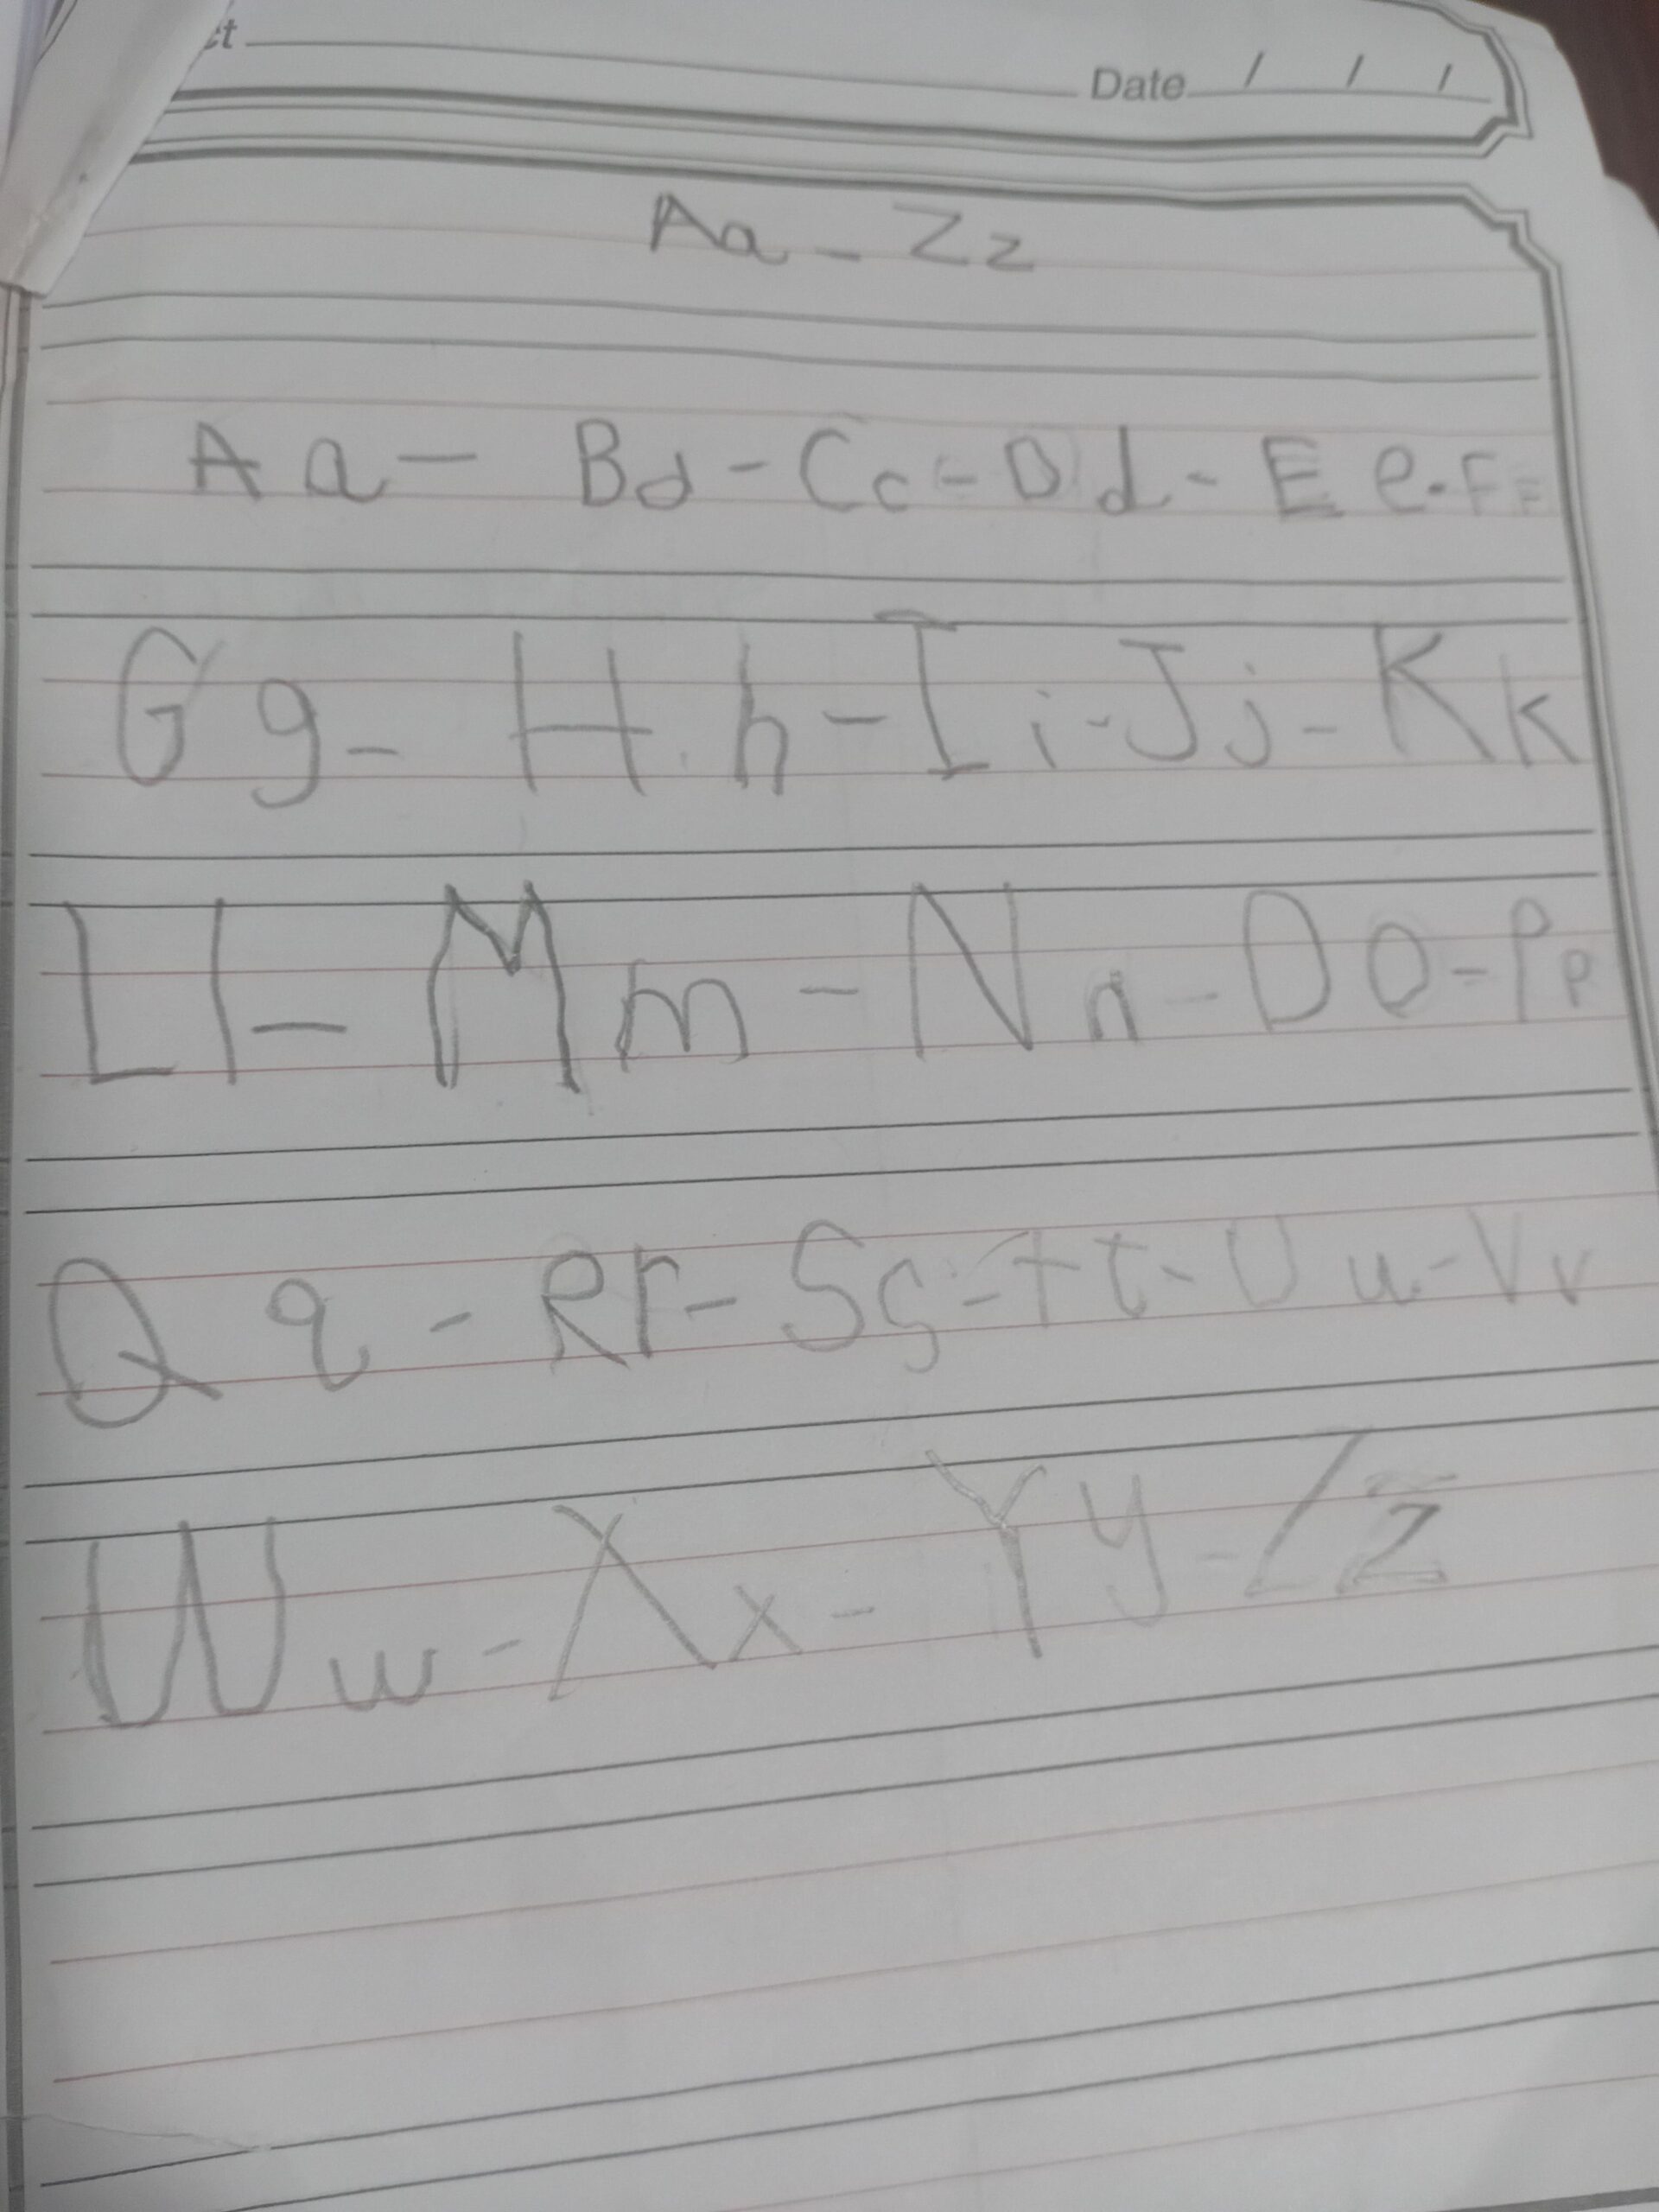 ct
Date / / /
Aa - Zz
A a - Bd - Cc - D d - E e - F F
G g - H h - I i - J j - K k
L l - M m - N n - O o - P p
Q q - R r - S s - t t - U u - V v
W w - X x - Y y - Z z